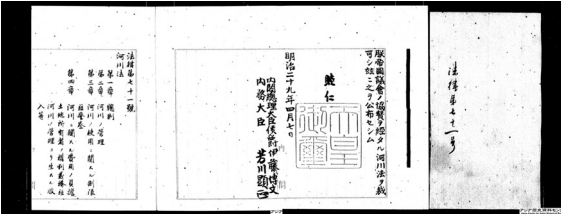 法律第七十一号
朕帝國議會ノ協賛ヲ經タル河川法ヲ裁
可シ茲ニ之ヲ公布セシム
睦仁
天皇御璽
明治二十九年四月七日
内閣總理大臣侯爵伊藤博文
内務大臣 芳川顯正
法律第七十一號
河川法
第一章 總則
第二章 河川ノ管理
第三章 河川ノ使用ニ關スル制限
第四章 河川ニ關スル費用ノ負擔
土地所有者ノ權利義務
河川ノ管理ヨリ生スル收
入等